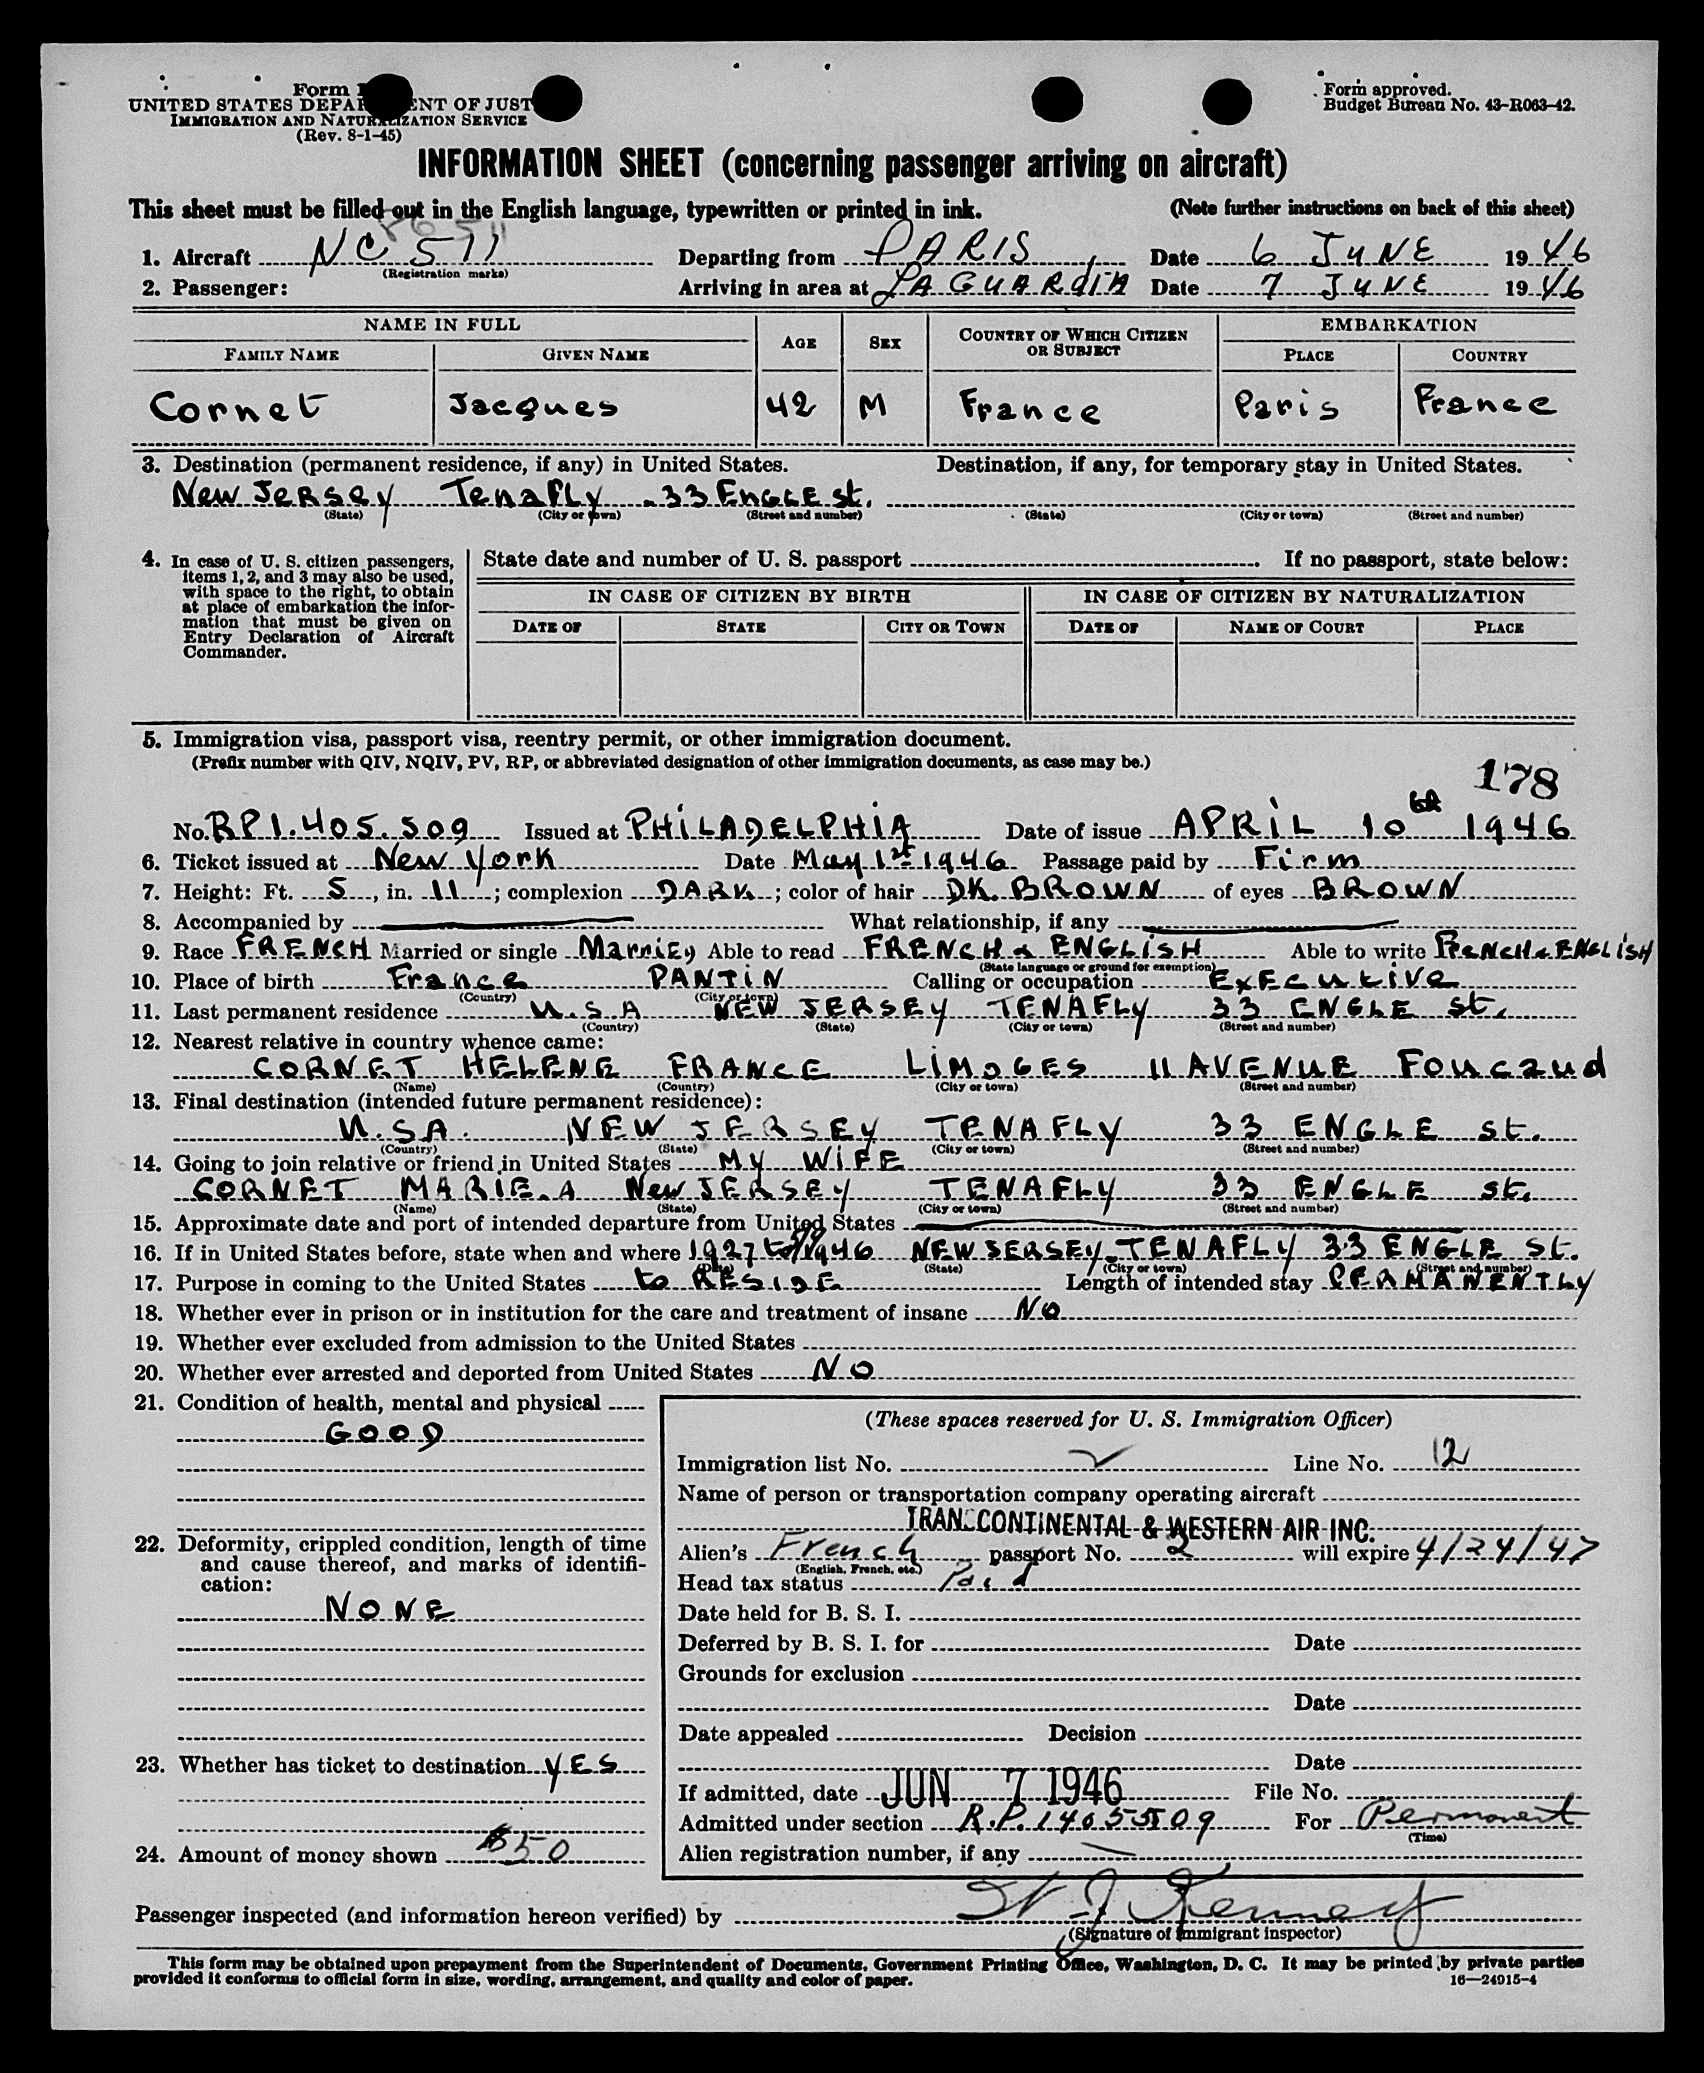 Form I
UNITED STATES DEPARTMENT OF JUST
IMMIGRATION AND NATURALIZATION SERVICE
(Rev. 8-1-45)
Form approved.
Budget Bureau No. 43-R063-42.
INFORMATION SHEET (concerning passenger arriving on aircraft)
This sheet must be filled out in the English language, typewritten or printed in ink. (Note further instructions on back of this sheet)
1. Aircraft NC 511 Departing from PARIS, Date 6 JUNE 1946
(Registration marks)
2. Passenger: Arriving in area at LA GUARDIA Date 7 JUNE 1946
NAME IN FULL AGE SEX COUNTRY OF WHICH CITIZEN OR SUBJECT EMBARKATION
FAMILY NAME GIVEN NAME PLACE COUNTRY
Cornet Jacques 42 M France Paris France
3. Destination (permanent residence, if any) in United States. Destination, if any, for temporary stay in United States.
New Jersey Tenafly 33 Engle st.
(State) (City or town) (Street and number) (State) (City or town) (Street and number)
4. In case of U. S. citizen passengers, items 1, 2, and 3 may also be used, with space to the right, to obtain at place of embarkation the information that must be given on Entry Declaration of Aircraft Commander.
State date and number of U. S. passport If no passport, state below:
IN CASE OF CITIZEN BY BIRTH IN CASE OF CITIZEN BY NATURALIZATION
DATE OF STATE CITY OR TOWN DATE OF NAME OF COURT PLACE
5. Immigration visa, passport visa, reentry permit, or other immigration document.
(Prefix number with QIV, NQIV, PV, RP, or abbreviated designation of other immigration documents, as case may be.)
178
No. RP1.405.509 Issued at PHILADELPHIA Date of issue APRIL 10th 1946
6. Ticket issued at New York Date May 1st 1946 Passage paid by Firm
7. Height: Ft. 5, in. 11; complexion DARK; color of hair DK. BROWN of eyes BROWN
8. Accompanied by What relationship, if any
9. Race FRENCH Married or single Married Able to read FRENCH & ENGLISH Able to write FRENCH & ENGLISH
(State language or ground for exemption)
10. Place of birth France PANTIN Calling or occupation EXECUTIVE
(Country) (City or town)
11. Last permanent residence U.S.A NEW JERSEY TENAFLY 33 ENGLE st.
(Country) (State) (City or town) (Street and number)
12. Nearest relative in country whence came:
CORNET HELENE FRANCE LIMOGES 11 AVENUE Foucaud
(Name) (Country) (City or town) (Street and number)
13. Final destination (intended future permanent residence):
U.S.A. NEW JERSEY TENAFLY 33 ENGLE st.
(Country) (State) (City or town) (Street and number)
14. Going to join relative or friend in United States MY WIFE
CORNET MARIE.A New JERSEY TENAFLY 33 ENGLE st.
(Name) (State) (City or town) (Street and number)
15. Approximate date and port of intended departure from United States
16. If in United States before, state when and where 1927 to 1946 NEW JERSEY TENAFLY 33 ENGLE St.
(Date) (State) (City or town) (Street and number)
17. Purpose in coming to the United States to RESIDE Length of intended stay PERMANENTLY
18. Whether ever in prison or in institution for the care and treatment of insane NO
19. Whether ever excluded from admission to the United States
20. Whether ever arrested and deported from United States NO
21. Condition of health, mental and physical
GOOD
22. Deformity, crippled condition, length of time and cause thereof, and marks of identification:
NONE
23. Whether has ticket to destination YES
24. Amount of money shown $50
(These spaces reserved for U. S. Immigration Officer)
Immigration list No. Line No. 12
Name of person or transportation company operating aircraft
TRANSCONTINENTAL & WESTERN AIR INC.
Alien's French passport No. 2 will expire 4/24/47
(English, French, etc.)
Head tax status Paid
Date held for B. S. I.
Deferred by B. S. I. for Date
Grounds for exclusion
Date
Date appealed Decision
Date
If admitted, date JUN 7 1946 File No.
Admitted under section R.P. 1405509 For Permanent
(Time)
Alien registration number, if any
Passenger inspected (and information hereon verified) by
(Signature of immigrant inspector)
This form may be obtained upon prepayment from the Superintendent of Documents, Government Printing Office, Washington, D. C. It may be printed by private parties
provided it conforms to official form in size, wording, arrangement, and quality and color of paper. 16—24915-4